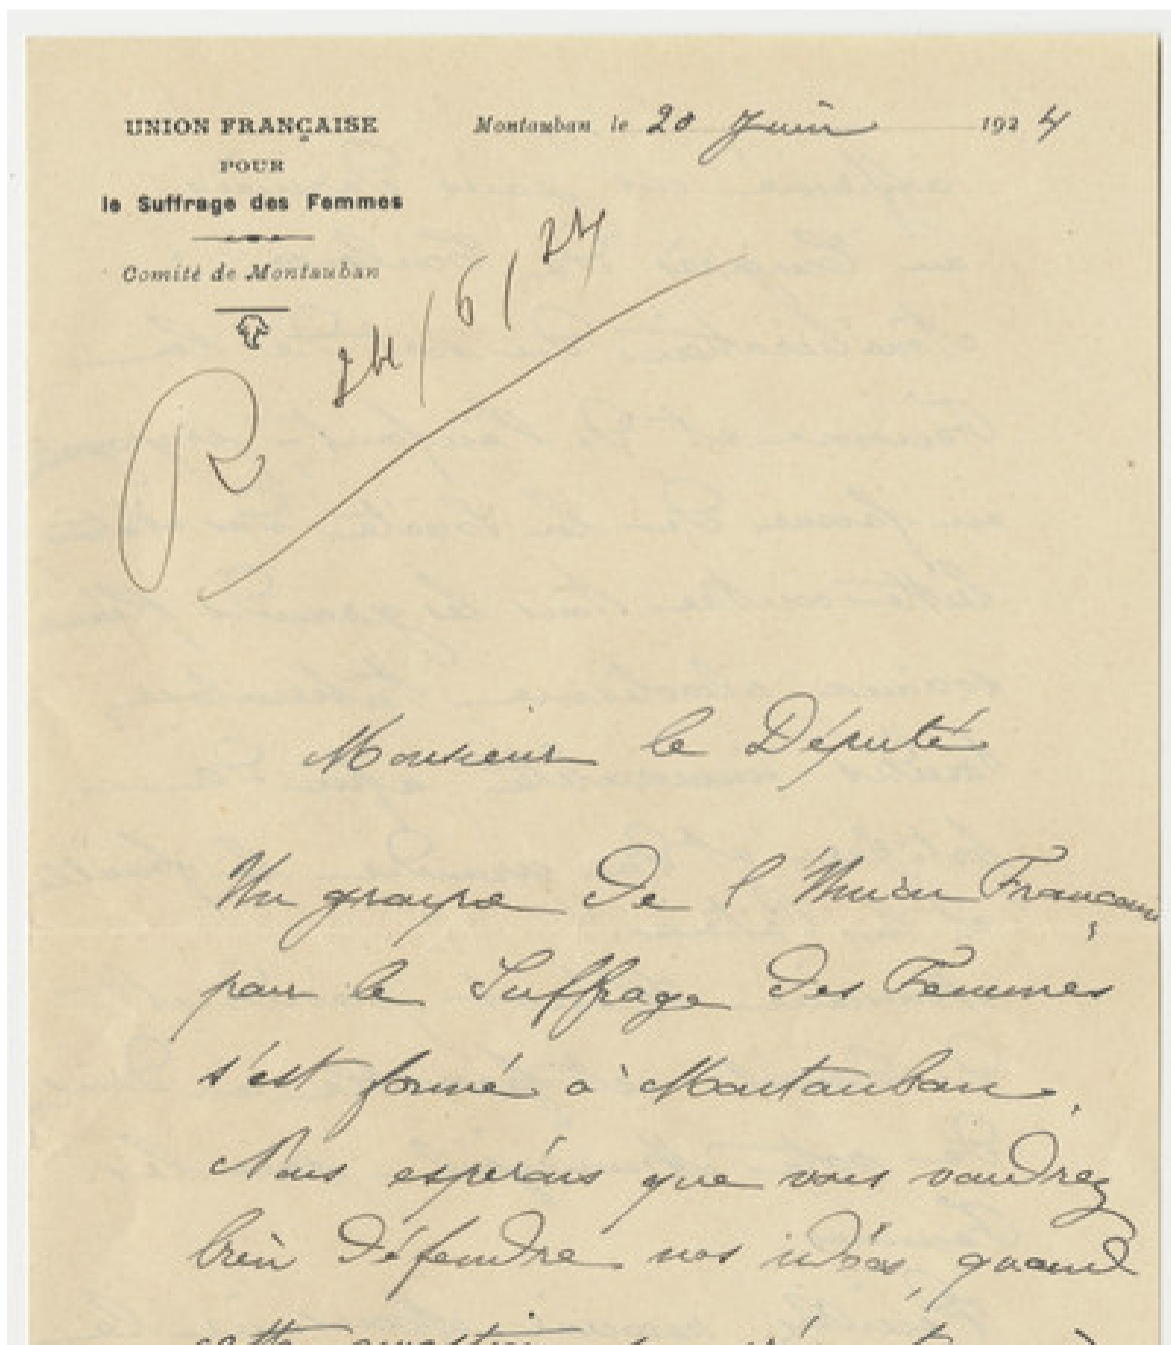 UNION FRANÇAISE
POUR
le Suffrage des Femmes
Comité de Montauban
Montauban le 20 Juin 1924
R 24/6/24
Monsieur le Député
Un groupe de l'Union Française
pour le Suffrage des Femmes
s'est formé à Montauban.
Nous espérons que vous voudrez
bien défendre nos idées, quand
cette question